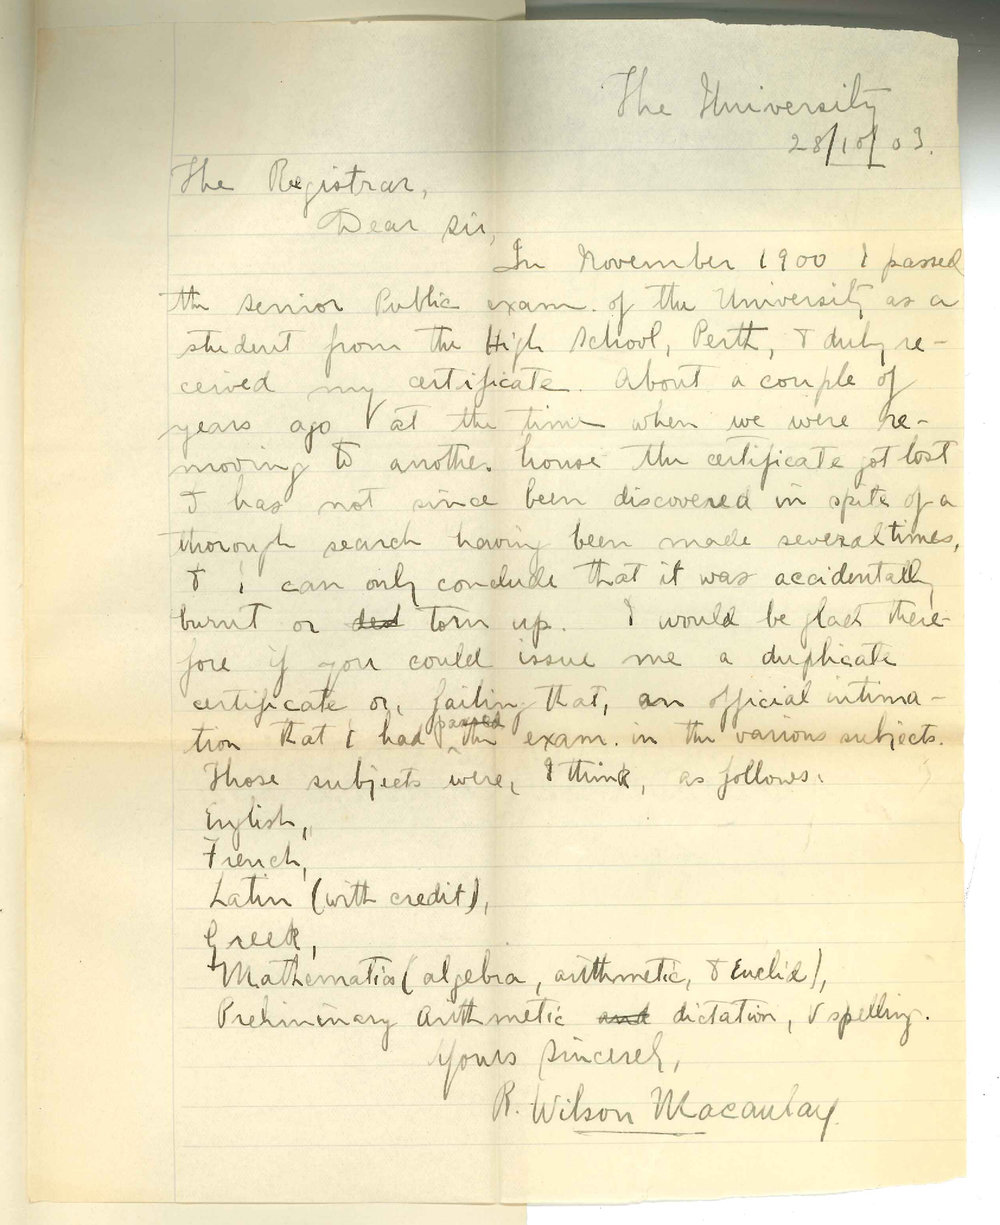 The University
28/10/03.
The Registrar,
Dear Sir,
In November 1900 I passed
the senior Public exam. of the University as a
student from the High School, Perth, & duly re-
ceived my certificate. About a couple of
years ago at the time when we were re-
moving to another house the certificate got lost
& has not since been discovered in spite of a
thorough search having been made several times,
& I can only conclude that it was accidentally
burnt or ded torn up. I would be glad there-
fore if you could issue me a duplicate
certificate or, failing that, an official intima-
tion that I had passed the exam. in the various subjects.
Those subjects were, I think, as follows.
English,
French,
Latin (with credit),
Greek,
Mathematics (algebra, arithmetic, & Euclid),
Preliminary Arithmetic and dictation, & spelling.
Yours sincerely,
R. Wilson Macaulay.